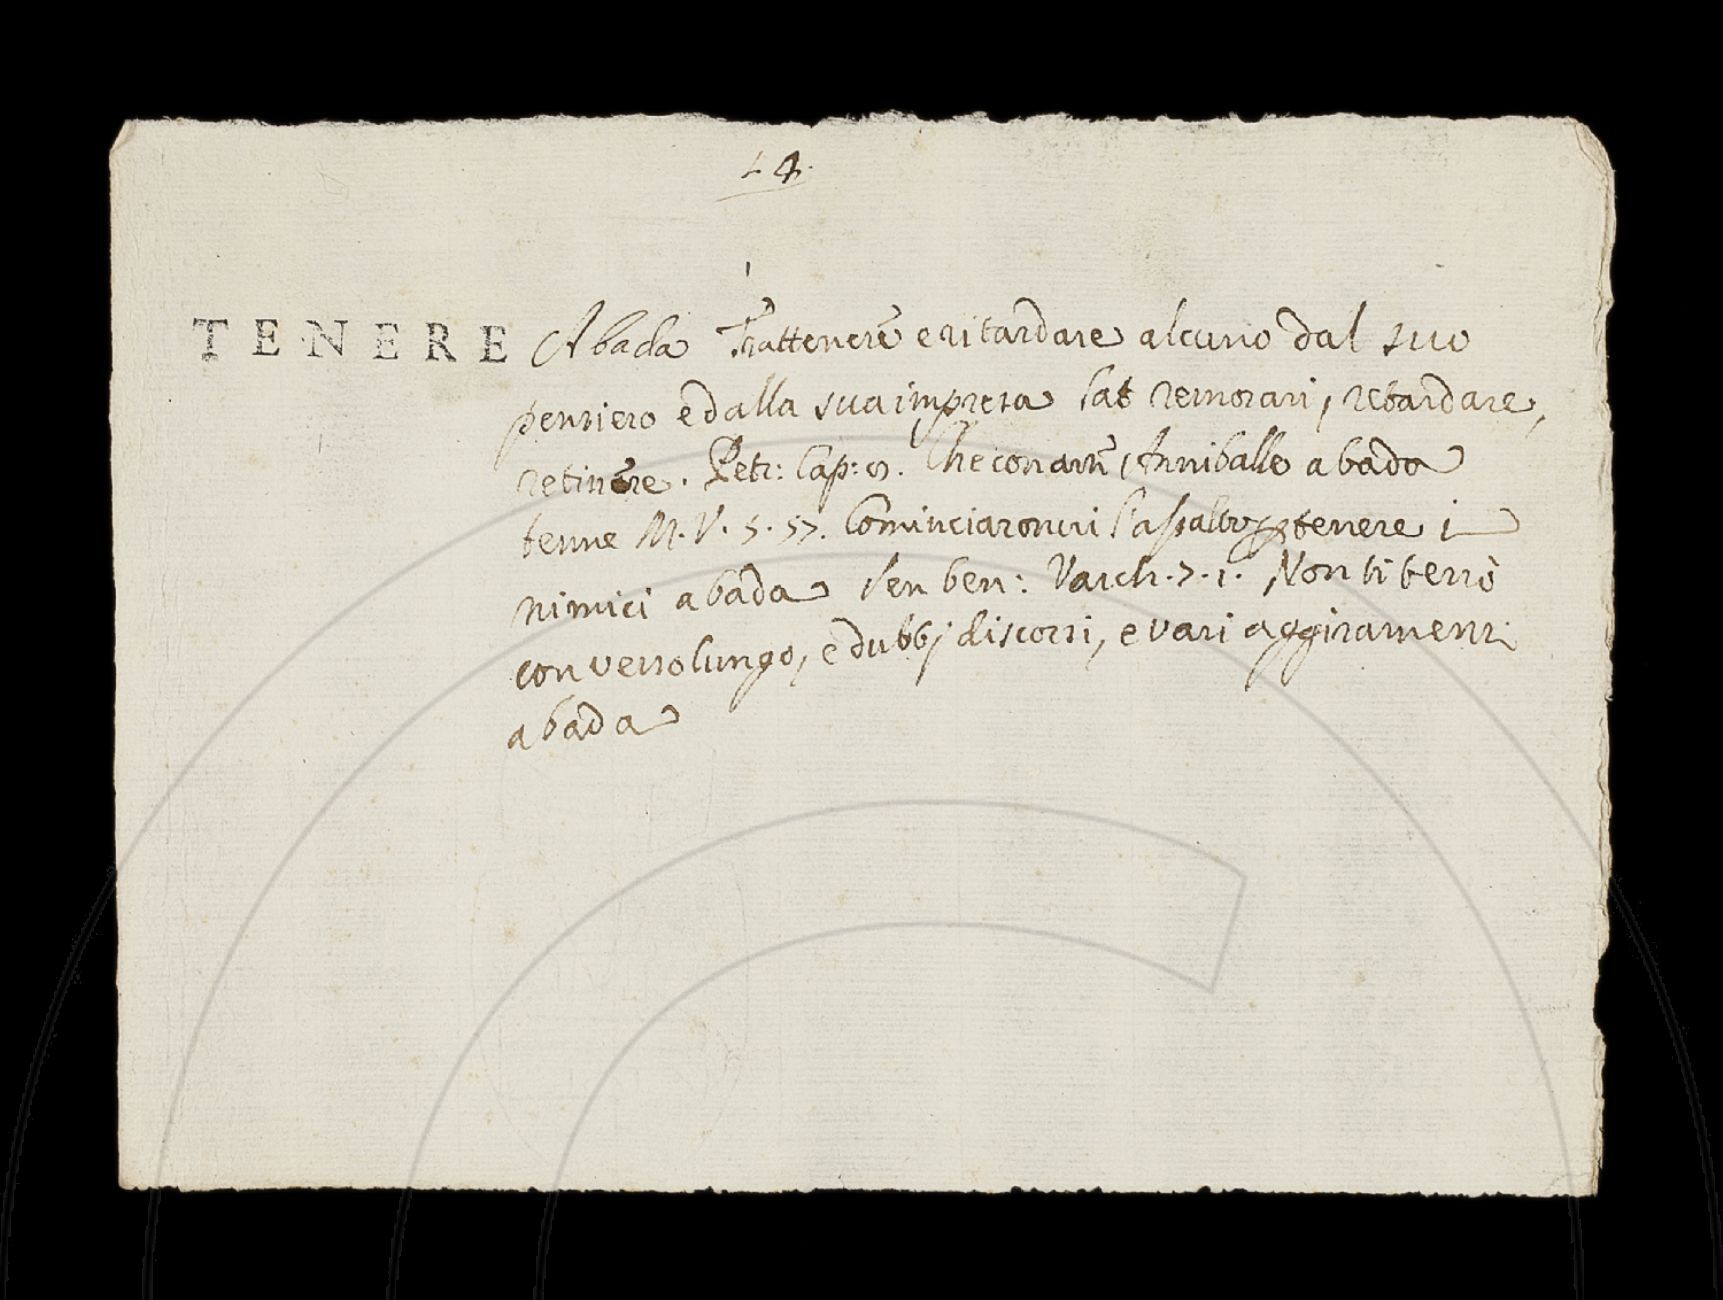 L 4.
TENERE Abada Trattenere e ritardare alcuno dal suo
pensiero e dalla sua impresa Lat remorari, retardare,
retinere. Petr: Cap: 9. Che con arte Anniballe abada
tenne M. V. 5. 57. Cominciaronvi l'aspalto per tenere i
nimici abada Sen ben: Varch. 7. 1. Non ti terrò
con verso lungo, e dubbj discorsi, e vari aggiramenti
abada